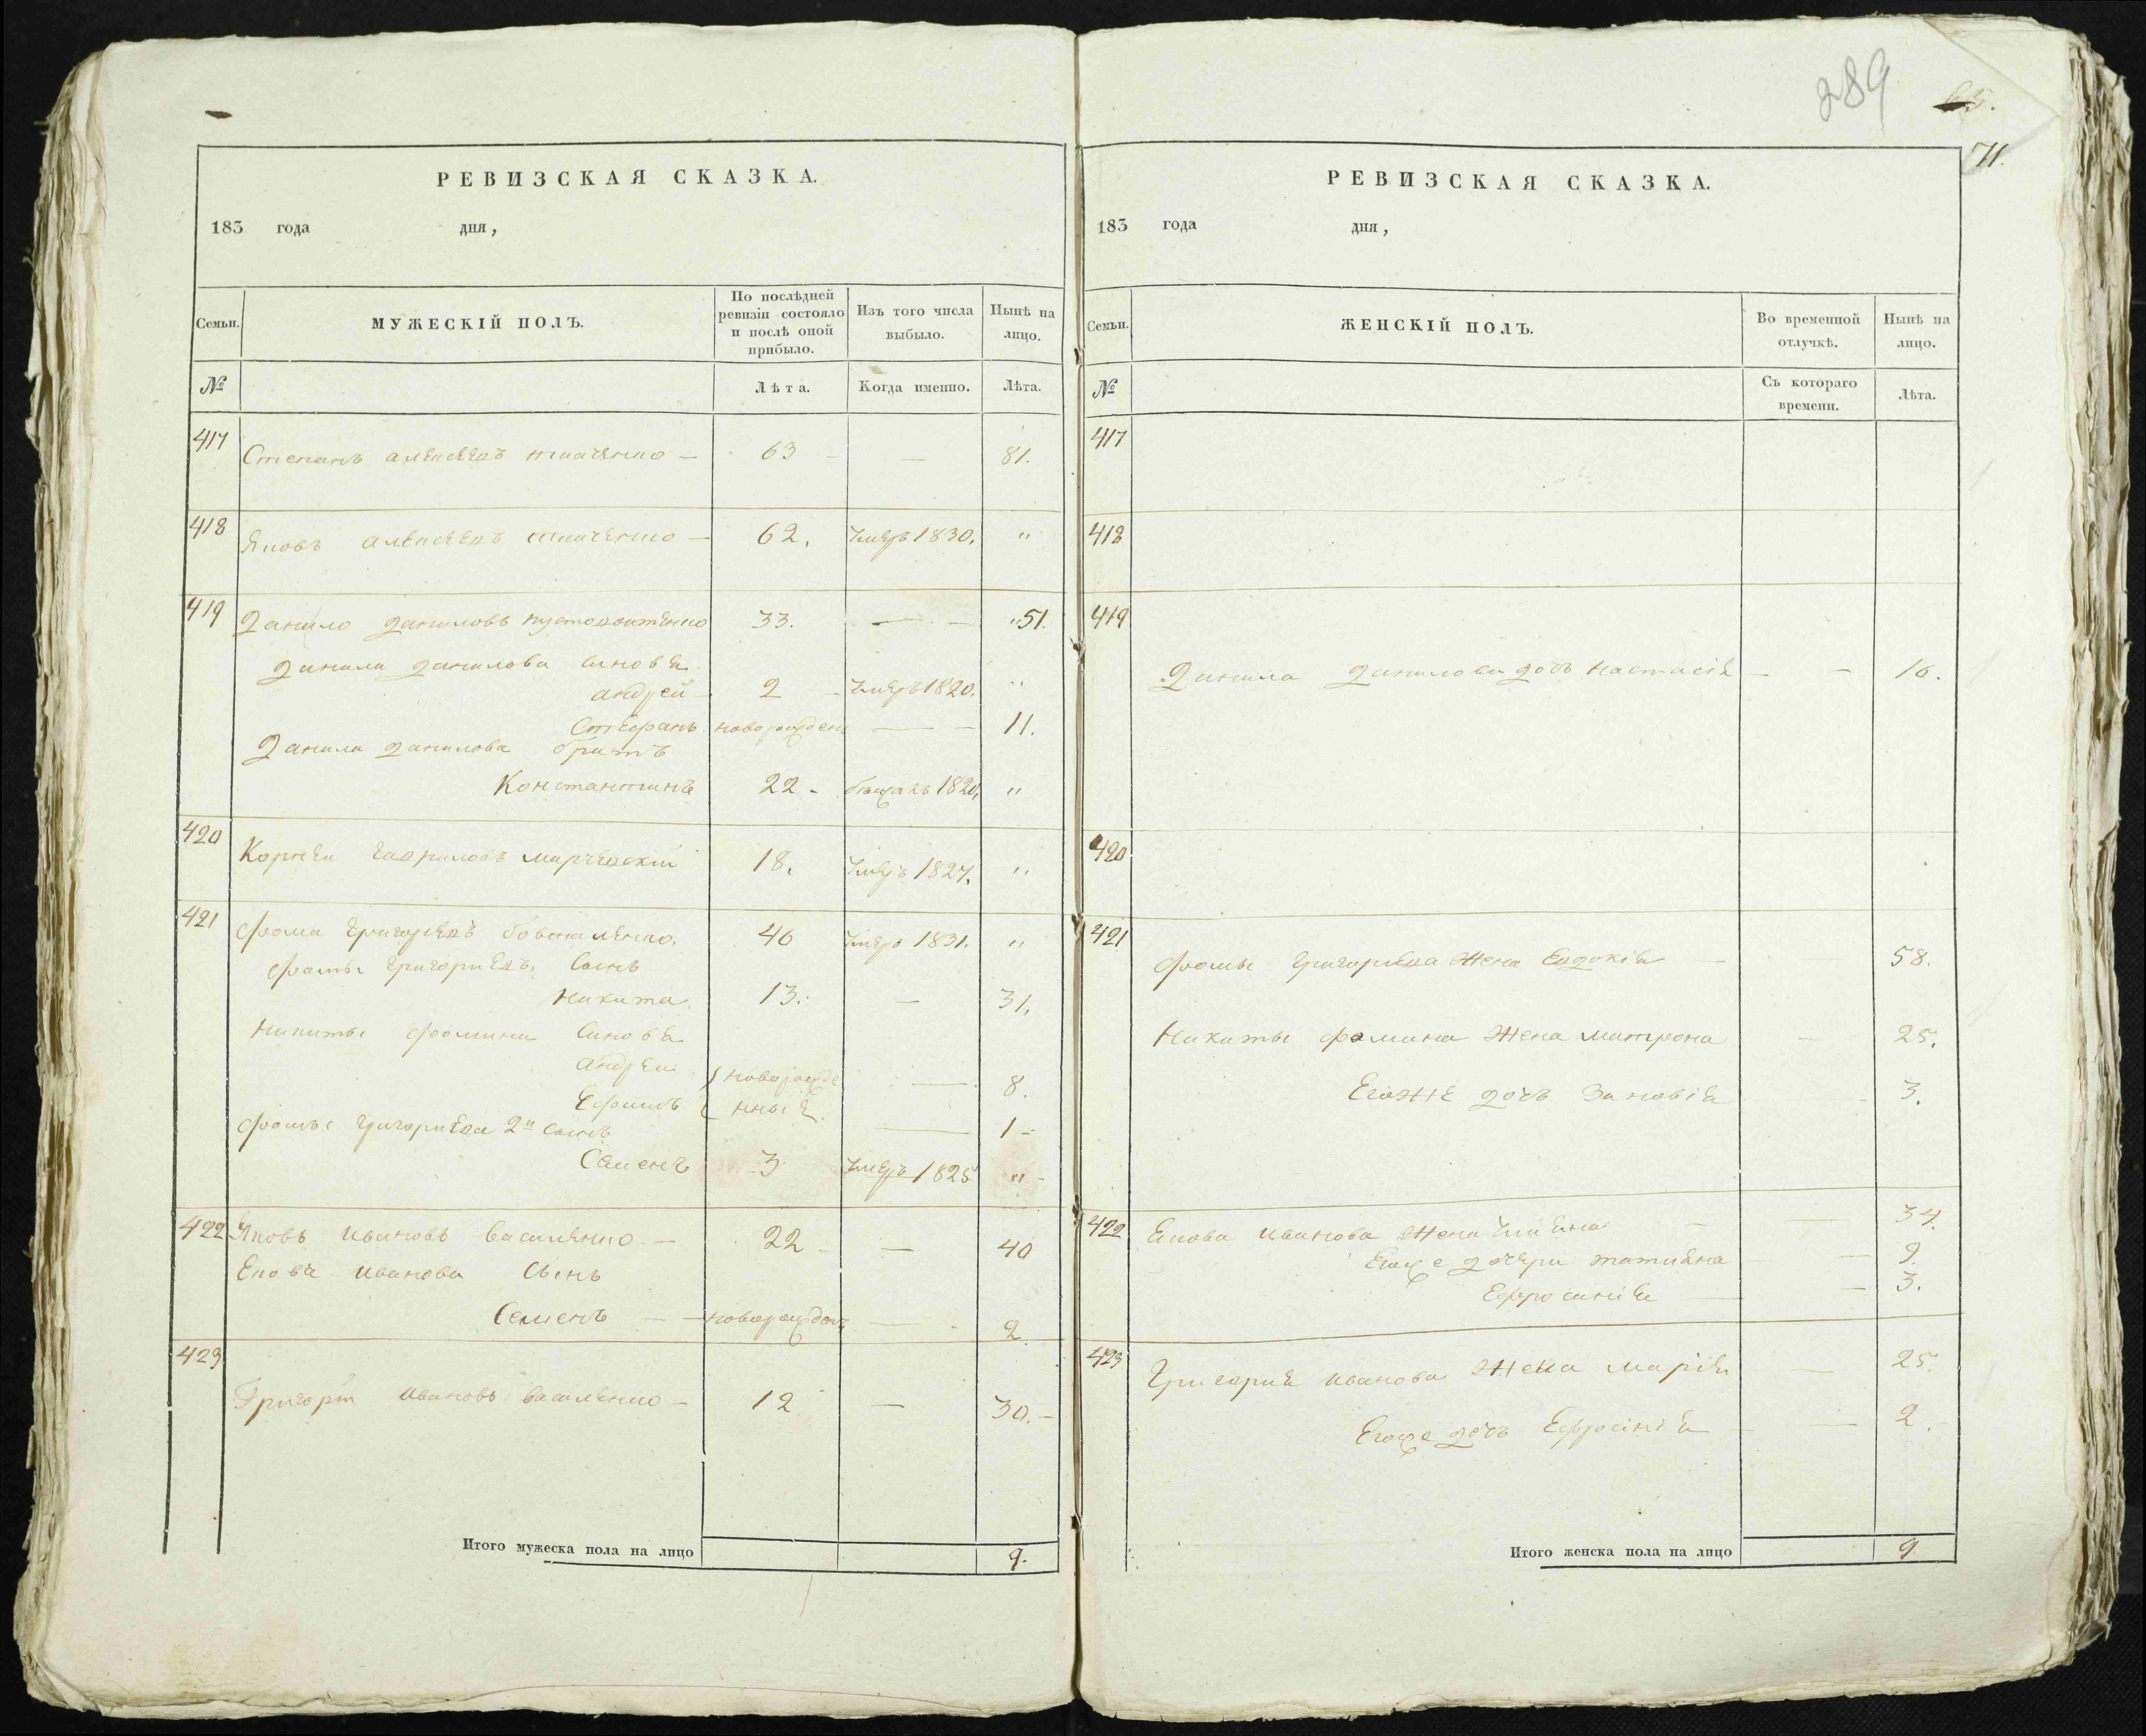 289
65.
71.
РЕВИЗСКАЯ СКАЗКА.
183 года дня,
Семьи. МУЖЕСКІЙ ПОЛЪ. По послѣдней ревизіи состояло и послѣ оной прибыло. Изъ того числа выбыло. Нынѣ на лицо.
№ Лѣта. Когда именно. Лѣта.
417 Степанъ алексеевъ ткаченко — 63 — — 81.
418 Яковъ алексеевъ ткаченко — 62. Умеръ 1830. "
419 Данило даниловъ пустовитенко 33. — — 51.
Данила данилова синовя
андрей — 2 — Умеръ 1820. "
Стефанъ новорожденъ — — 11.
Данила данилова братъ
Константинъ 22 - бежалъ 1820, "
420 Корнеи гавриловъ марчевскій 18. Умеръ 1827. "
421 фома григориевъ коваленко. 40 Умеръ 1831. "
фомы григориевъ. Сынъ
Никита. 13. — 31.
Никиты фомина Синовя
андреи новорожде — 8.
Ефимъ нные. — 1 -
фомы григориева 2й Сынъ
Семенъ 3 Умеръ 1825 " -
422 Яковъ ивановъ василенко — 22 - — 40
Якова иванова Сынъ
Семенъ — — новорожденъ — . 2.
423
Григорій ивановъ василенко — 12 — 30. -
Итого мужеска пола на лицо 9.
РЕВИЗСКАЯ СКАЗКА.
183 года дня,
Семьи. ЖЕНСКІЙ ПОЛЪ. Во временной отлучкѣ. Нынѣ на лицо.
№ Съ котораго времени. Лѣта.
417
418
419
Данила данилова дочь настасія — — 16.
420
421
фомы григориева жена Евдокія — 58.
Никиты фомина жена матрона — 25.
Егоже дочь Зиновія 3.
422 Якова иванова жена — 34.
Егоже дочери татияна — 9.
Ефросинія — 3.
423 Григория иванова жена марія — 25.
Егоже дочь Ефросинія — 2.
Итого женска пола на лицо 9